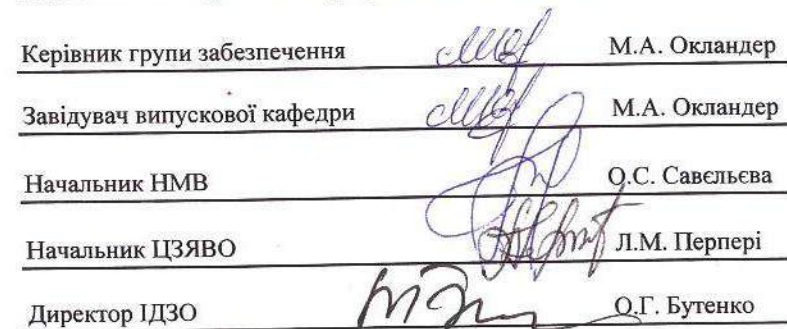 Керівник групи забезпечення М.А. Окландер
Завідувач випускової кафедри М.А. Окландер
Начальник НМВ О.С. Савєльєва
Начальник ЦЗЯВО Л.М. Перпері
Директор ІДЗО О.Г. Бутенко